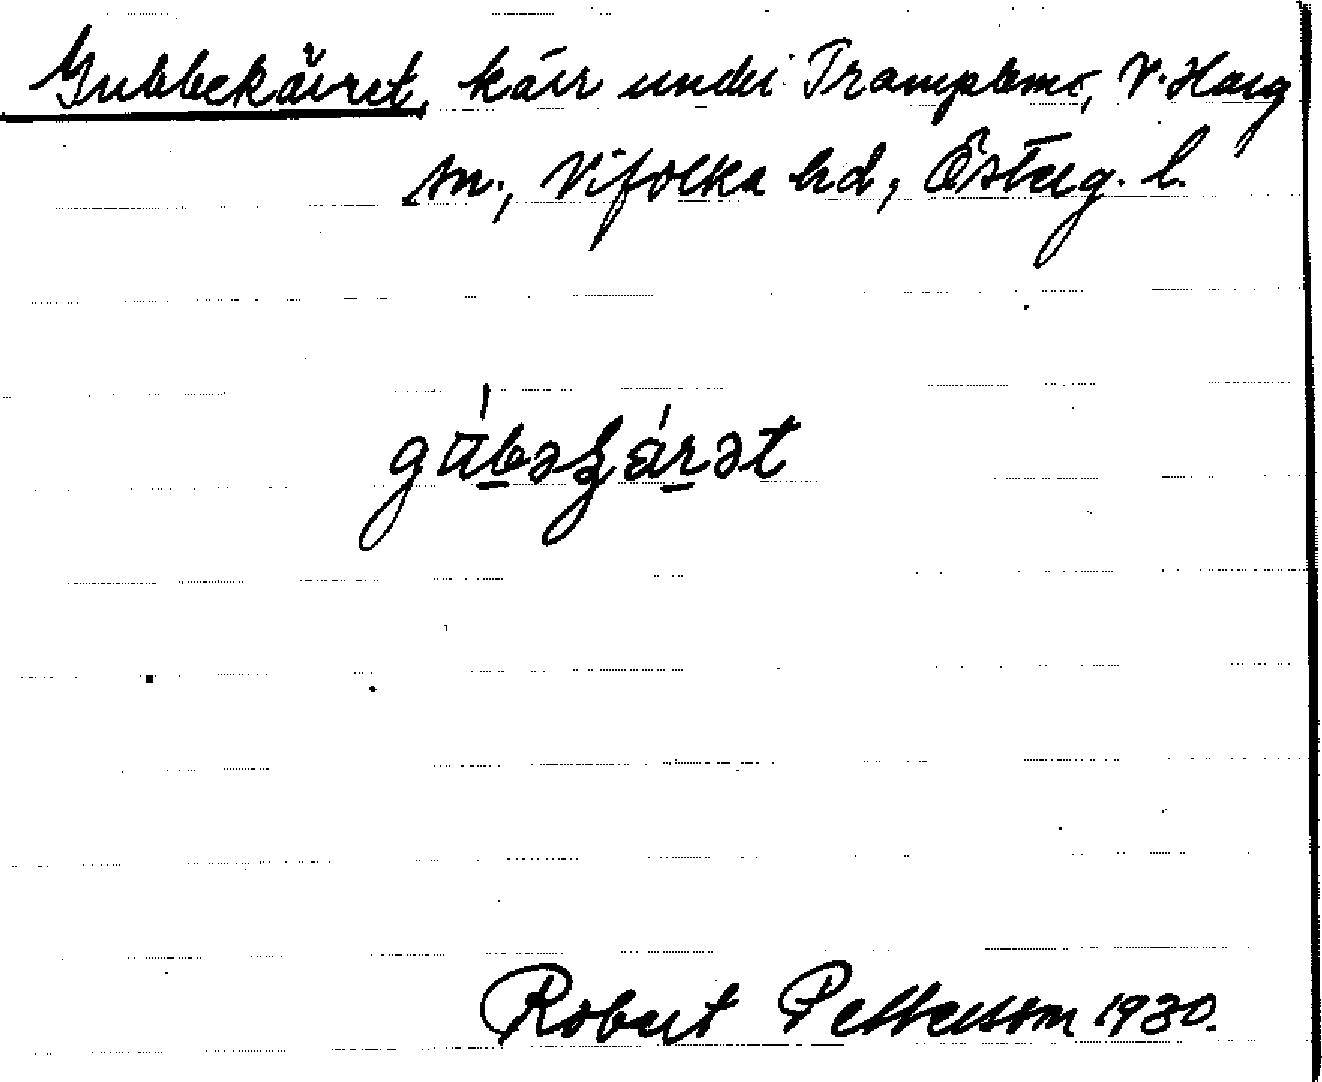 Gubbekärret, kärr under Tramplemo, V. Harg
sn., Vifolka hd, Österg. l.
gúbəkárət
Robert Pettersson 1930.